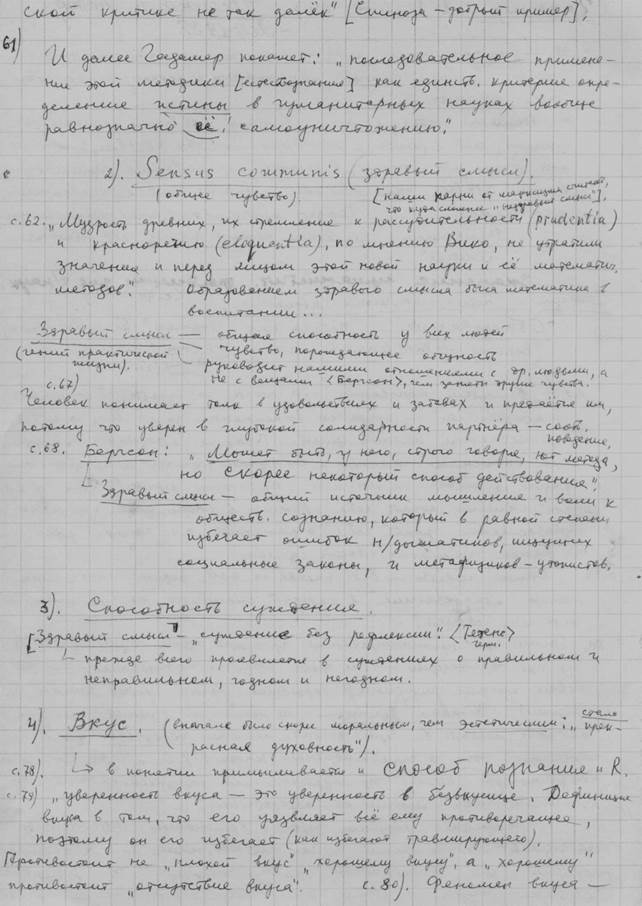 ской критике не так далёк" [Спиноза – добрый пример],
61) И далее Гадамер покажет: „последовательное примене-
ние этой методики [естествознания] как единств. критерия опре-
деление истины в гуманитарных науках вообще
равнозначно её самоуничтожению."
2). Sensus communis (здравый смысл).
(общее чувство)
с.62. „Мудрость древних, их стремление к рассудительности (prudentia)
и красноречию (eloquentia), по мнению Вико, не утратили
значения и перед лицом этой новой науки и её математич.
методов". Образованием здравого смысла была математика в
воспитании...
Здравый смысл — общая способность у всех людей
(гений практической жизни). чувство, порождающее общность
руководит нашими отношениями с др. людьми, а
не с вещами <Бергсон>, чем заняты другие чувства.
с.67)
Человек понимает толк в удовольствиях и затеях и предаётся им,
потому что уверен в глубокой солидарности партнёра – соотв.
поведение.
с.68. Бергсон: „Может быть, у него, строго говоря, нет метода,
но скорее некоторый способ действования".
Здравый смысл – общий источник мышления и воли к
обществ. сознанию, который в равной степени
избегает ошибок н/догматиков, ищущих
социальные законы, и метафизиков-утопистов.
3). Способность суждения.
[Здравый смысл – „суждение без рефлексии". <Тетенс>
прежде всего проявляется в суждениях о правильном и
неправильном, годном и негодном.
4). Вкус. (вначале было скорее моральным, чем эстетическим: „стало прек-
расная духовность").
с.78). в понятии примысливается и способ познания и R.
с.79) „уверенность вкуса – это уверенность в безвкусице. Дефиниция
вкуса в том, что его уязвляет всё ему противоречащее,
поэтому он его избегает (как избегают травмирующего).
Противостоит не „плохой вкус" „хорошему вкусу", а „хорошему"
противостоит „отсутствие вкуса". с.80). Феномен вкуса –